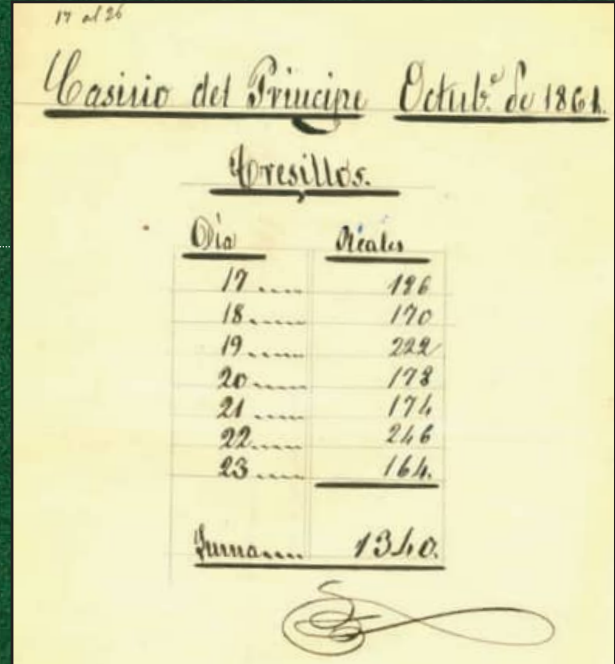 17 al 26
Casino del Principe Octub.ᵉ de 1861.
Tresillos.
Dia Reales
17..... 186
18..... 170
19..... 222
20..... 178
21..... 174
22..... 246
23..... 164.
Suma.... 1340.